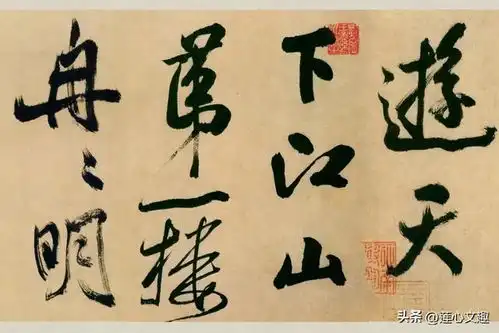 遊天
下江山
第一樓
冉〻明
头条 @蓮心文趣